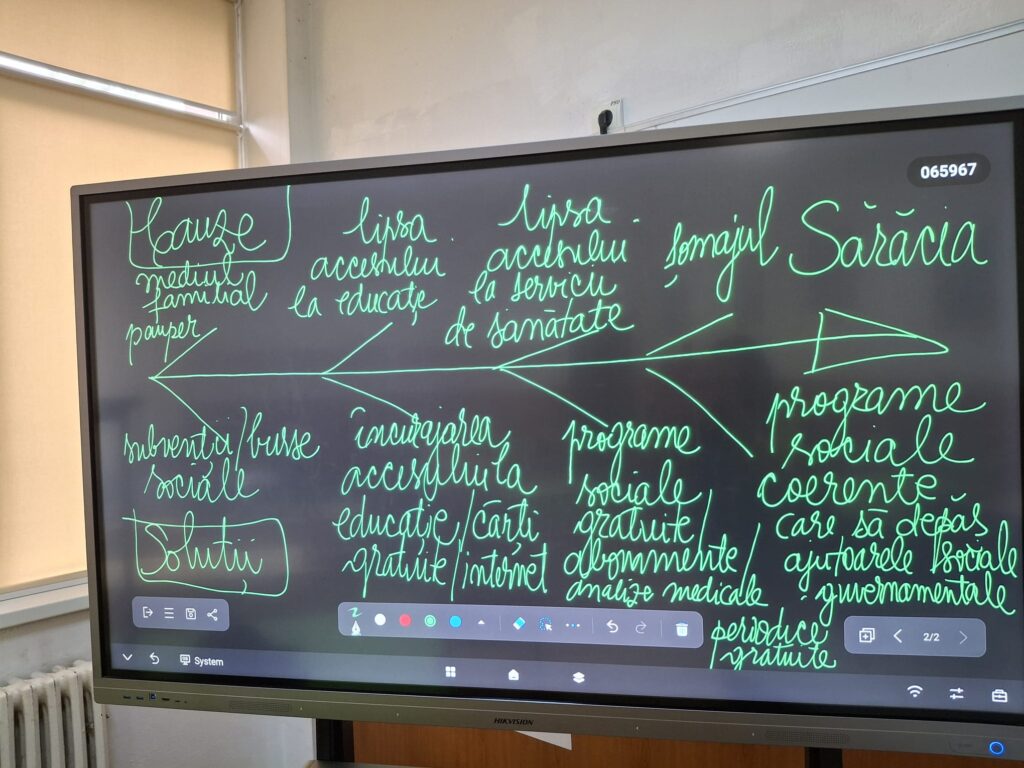 065967
Cauze
mediul
familial
pauper
lipsa
accesului
la educație
lipsa
accesului
la servicii
de sanătate
șomajul
Sărăcia
subvenții/burse
sociale
Soluții
încurajarea
accesului la
educație/cărți
gratuite/internet
programe
sociale
gratuite/
abonamente/
analize medicale
periodice
gratuite
programe
sociale
coerente
care să depăș
ajutoarele sociale
guvernamentale
2/2
System
HIKVISION